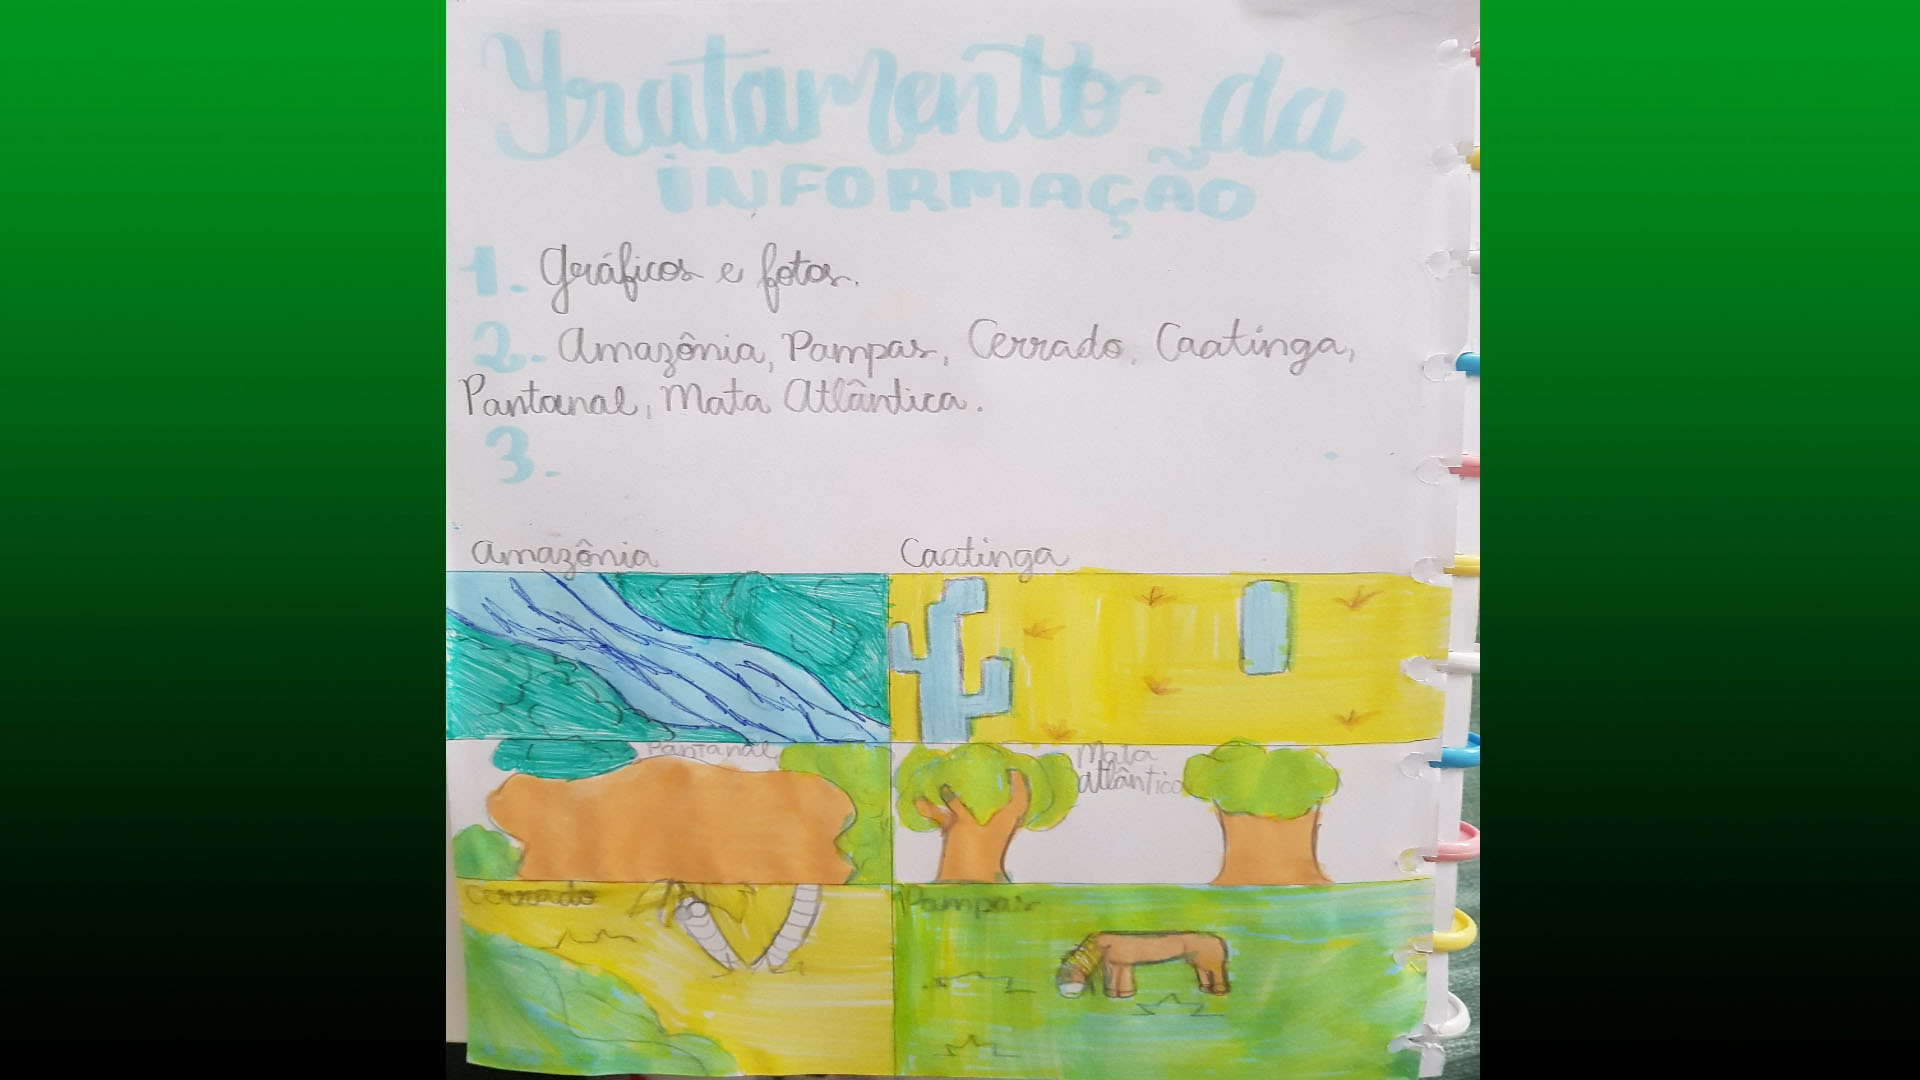 Tratamento da
INFORMAÇÃO
1. Gráficos e fotos.
2. Amazônia, Pampas, Cerrado, Caatinga,
Pantanal, Mata Atlântica.
3.
Amazônia
Caatinga
Pantanal
Mata
Atlântica
Cerrado
Pampas